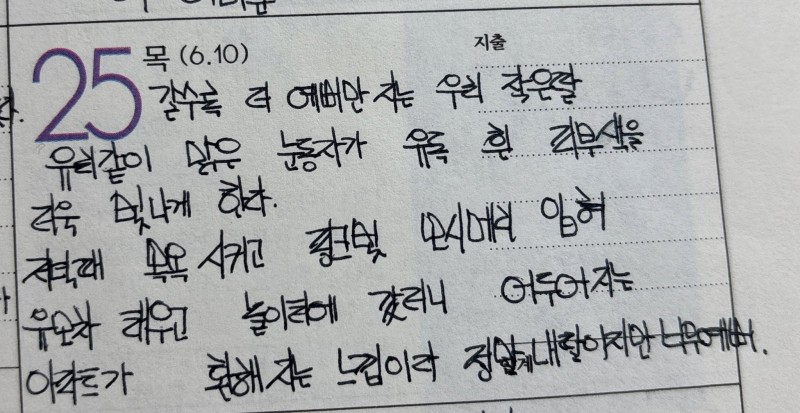 25 목 (6.10)
지출
갈수록 더 예버만 지는 우리 작은딸
유리같이 맑은 눈동자가 유독 흰 피부색을
더욱 빛나게 하다.
저녁때 목욕 시키고 핑크빛 모시메리 입혀
유모차 태우고 놀이터에 갔더니 어두어지는
아파트가 환해 지는 느낌이라 정말 내딸이지만 너무예버.